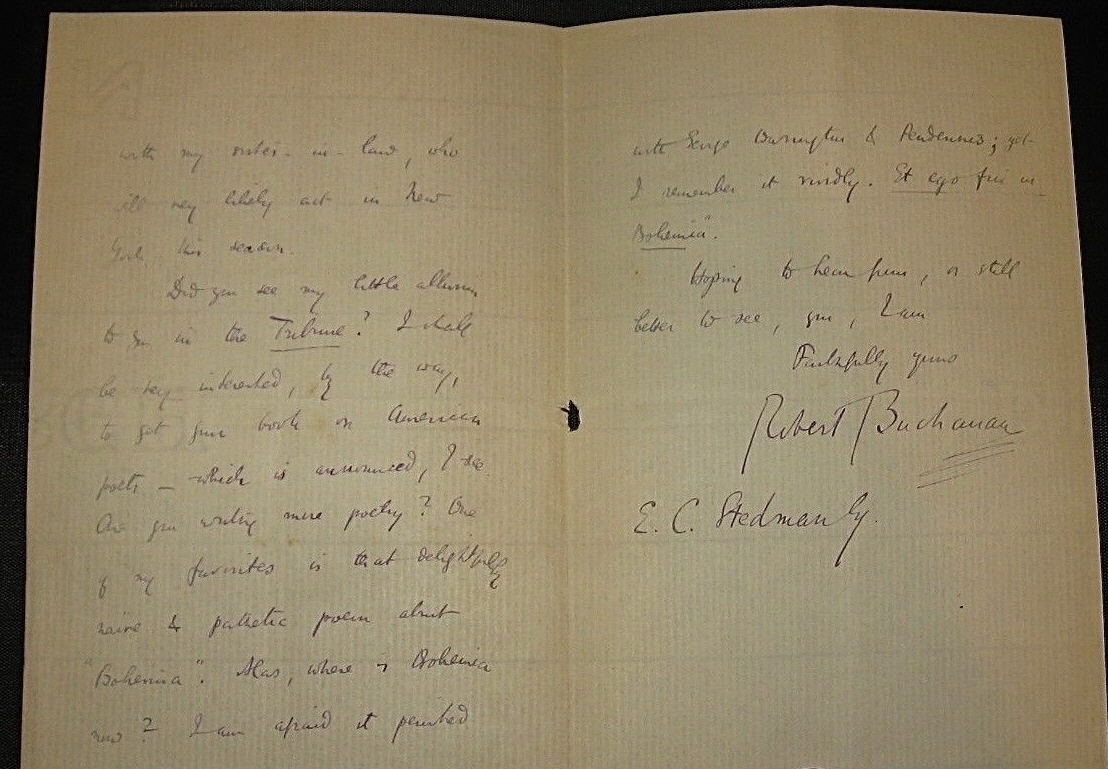 with my sister-in-law, who
will very likely act in New
York this season.
Did you see my little allusion
to you in the Tribune? I shall
be very interested, by the way,
to get your book on American
poets — which is announced, I see
Are you writing more poetry? One
of my favorites is that delightfully
naïve & pathetic poem about
"Bohemia". Alas, where is Bohemia
now? I am afraid it perished
with George Warrington & Pendennis; yet
I remember it vividly. Et ego fui in
Bohemia".
Hoping to hear from, or still
better to see, you, I am
Faithfully yours
Robert Buchanan
E. C. Stedman Esq.